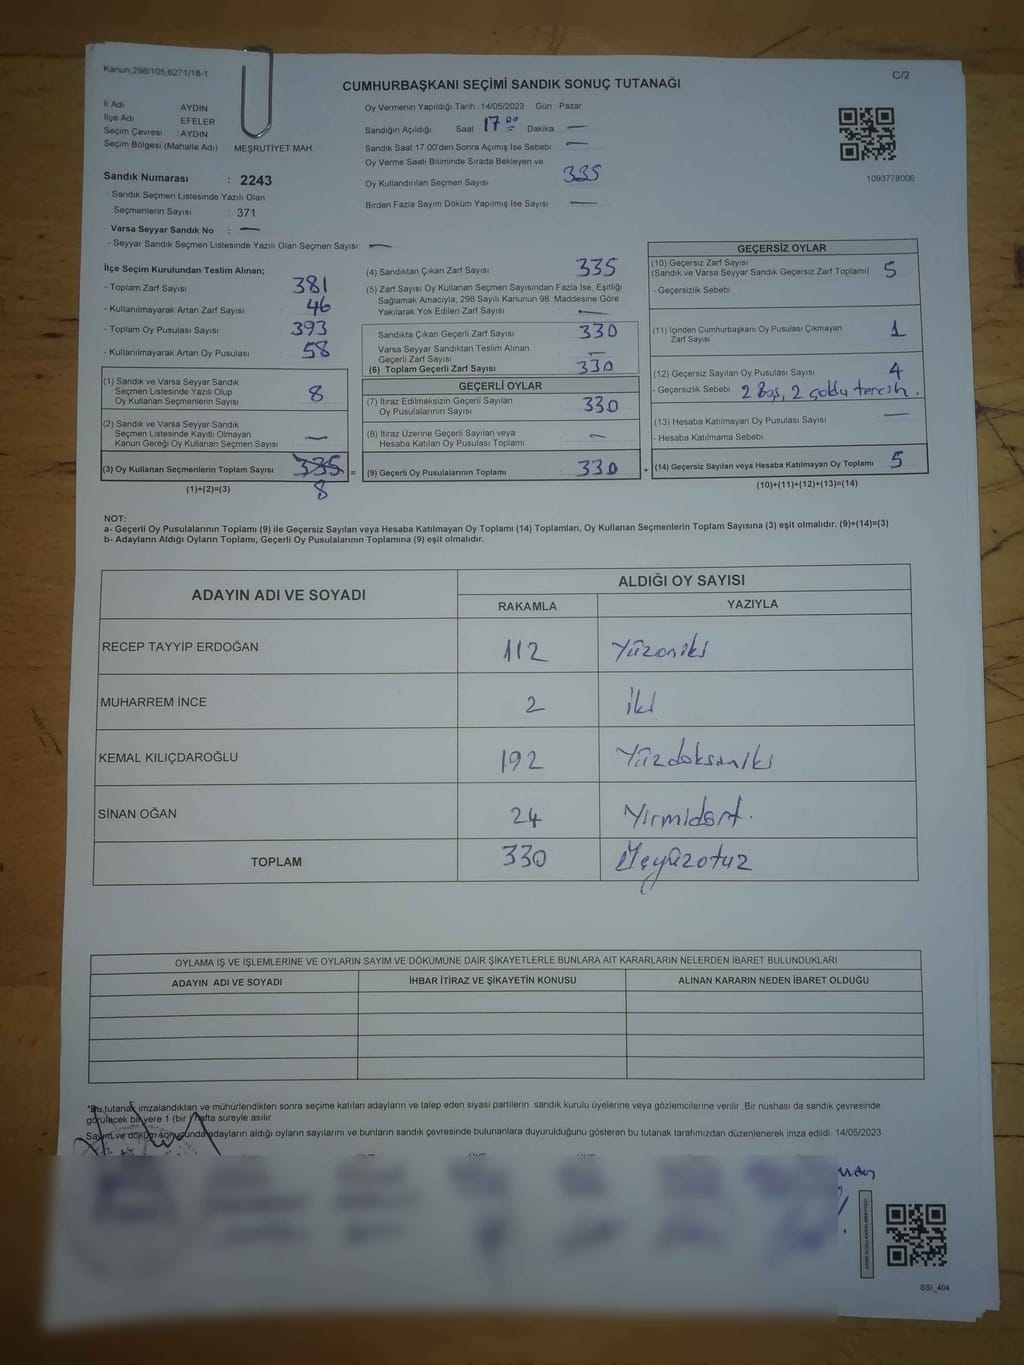 Kanun:298/105,6271/18-1
C/2
CUMHURBAŞKANI SEÇİMİ SANDIK SONUÇ TUTANAĞI
İl Adı AYDIN
İlçe Adı EFELER
Seçim Çevresi : AYDIN
Seçim Bölgesi (Mahalle Adı) MEŞRUTİYET MAH.
Sandık Numarası : 2243
- Sandık Seçmen Listesinde Yazılı Olan
Seçmenlerin Sayısı : 371
Varsa Seyyar Sandık No : —
- Seyyar Sandık Seçmen Listesinde Yazılı Olan Seçmen Sayısı: —
Oy Vermenin Yapıldığı Tarih :14/05/2023 Gün : Pazar
Sandığın Açıldığı Saat 17 00 Dakika —
Sandık Saat 17.00'den Sonra Açımış İse Sebebi —
Oy Verme Saati Bitiminde Sırada Bekleyen ve
Oy Kullandırılan Seçmen Sayısı 335
Birden Fazla Sayım Döküm Yapılmış İse Sayısı —
1093778006
İlçe Seçim Kurulundan Teslim Alınan;
- Toplam Zarf Sayısı 381
- Kullanılmayarak Artan Zarf Sayısı 46
- Toplam Oy Pusulası Sayısı 393
- Kullanılmayarak Artan Oy Pusulası 58
(1) Sandık ve Varsa Seyyar Sandık
Seçmen Listesinde Yazılı Olup
Oy Kullanan Seçmenlerin Sayısı 8
(2) Sandık ve Varsa Seyyar Sandık
Seçmen Listesinde Kayıtlı Olmayan
Kanun Gereği Oy Kullanan Seçmen Sayısı —
(3) Oy Kullanan Seçmenlerin Toplam Sayısı 335 =
(1)+(2)=(3) 8
(4) Sandıktan Çıkan Zarf Sayısı 335
(5) Zarf Sayısı Oy Kullanan Seçmen Sayısından Fazla İse, Eşitliği
Sağlamak Amacıyla, 298 Sayılı Kanunun 98. Maddesine Göre
Yakılarak Yok Edilen Zarf Sayısı —
Sandıkta Çıkan Geçerli Zarf Sayısı 330
Varsa Seyyar Sandıktan Teslim Alınan
Geçerli Zarf Sayısı —
(6) Toplam Geçerli Zarf Sayısı 330
GEÇERLİ OYLAR
(7) İtiraz Edilmeksizin Geçerli Sayılan
Oy Pusulalarının Sayısı 330
(8) İtiraz Üzerine Geçerli Sayılan veya
Hesaba Katılan Oy Pusulası Toplamı —
(9) Geçerli Oy Pusulalarının Toplamı 330 +
GEÇERSİZ OYLAR
(10) Geçersiz Zarf Sayısı
(Sandık ve Varsa Seyyar Sandık Geçersiz Zarf Toplamı) 5
- Geçersizlik Sebebi
(11) İçinden Cumhurbaşkanı Oy Pusulası Çıkmayan
Zarf Sayısı 1
(12) Geçersiz Sayılan Oy Pusulası Sayısı 4
- Geçersizlik Sebebi 2 Boş, 2 çoklu tercih.
(13) Hesaba Katılmayan Oy Pusulası Sayısı —
- Hesaba Katılmama Sebebi
(14) Geçersiz Sayılan veya Hesaba Katılmayan Oy Toplamı 5
(10)+(11)+(12)+(13)=(14)
NOT:
a- Geçerli Oy Pusulalarının Toplamı (9) ile Geçersiz Sayılan veya Hesaba Katılmayan Oy Toplamı (14) Toplamları, Oy Kullanan Seçmenlerin Toplam Sayısına (3) eşit olmalıdır. (9)+(14)=(3)
b- Adayların Aldığı Oyların Toplamı, Geçerli Oy Pusulalarının Toplamına (9) eşit olmalıdır.
ADAYIN ADI VE SOYADI
ALDIĞI OY SAYISI
RAKAMLA YAZIYLA
RECEP TAYYİP ERDOĞAN 112 Yüzoniki
MUHARREM İNCE 2 iki
KEMAL KILIÇDAROĞLU 192 Yüzdoksaniki
SİNAN OĞAN 24 Yirmidört.
TOPLAM 330 Üçyüzotuz
OYLAMA İŞ VE İŞLEMLERİNE VE OYLARIN SAYIM VE DÖKÜMÜNE DAİR ŞİKAYETLERLE BUNLARA AİT KARARLARIN NELERDEN İBARET BULUNDUKLARI
ADAYIN ADI VE SOYADI İHBAR İTİRAZ VE ŞİKAYETİN KONUSU ALINAN KARARIN NEDEN İBARET OLDUĞU
*Bu tutanak imzalandıktan ve mühürlendikten sonra seçime katılan adayların ve talep eden siyasi partilerin sandık kurulu üyelerine veya gözlemcilerine verilir. Bir nüshası da sandık çevresinde
görülecek bir yere 1 (bir) hafta süreyle asılır.
Sayım ve döküm sonucunda adayların aldığı oyların sayılarını ve bunların sandık çevresinde bulunanlara duyurulduğunu gösteren bu tutanak tarafımızdan düzenlenerek imza edildi. 14/05/2023
SSI_404